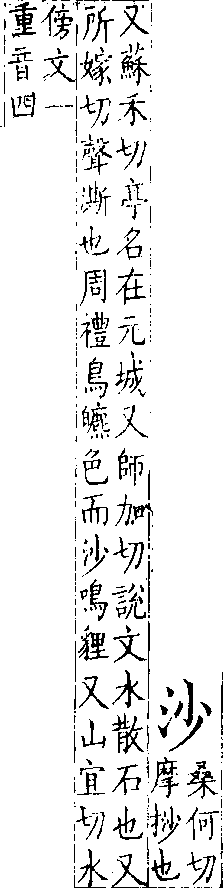 沙
桑何切
摩挱也
又蘇禾切亭名在元城又師加切說文水散石也又
所嫁切聲澌也周禮鳥皫色而沙鳴貍又山宜切水
傍文一
重音四